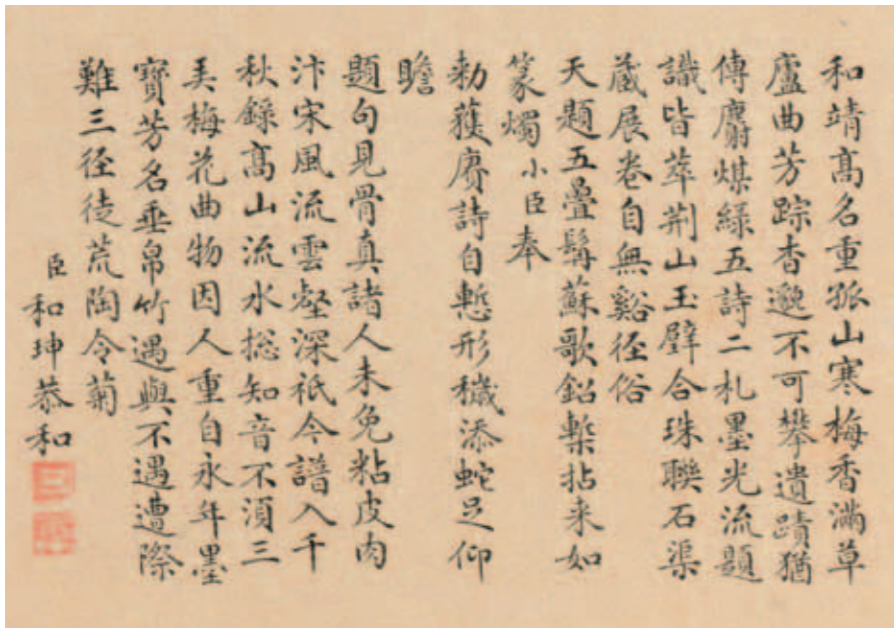 和靖高名重孤山寒梅香滿草
廬曲芳踪杳邈不可攀遺蹟猶
傳麝煤綠五詩二札墨光流題
識皆萃荆山玉璧合珠聯石渠
藏展卷自無谿徑俗
天題五疊髯蘇歌鉛槧拈来如
篆燭小臣奉
勅蕿賡詩自慙形穢添蛇足仰
瞻
題句見骨真諸人未免粘皮肉
汴宋風流雲壑深祇今譜入千
秋錄高山流水捴知音不湏三
美梅花曲物因人重自永年墨
寶芳名垂帛竹遇與不遇遭際
難三徑徒荒陶令菊
臣和珅恭和